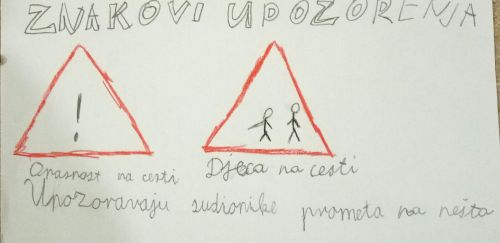 ZNAKOVI UPOZORENJA
!
Opasnost na cesti Djeca na cesti
Upozoravaju sudionike prometa na nešto